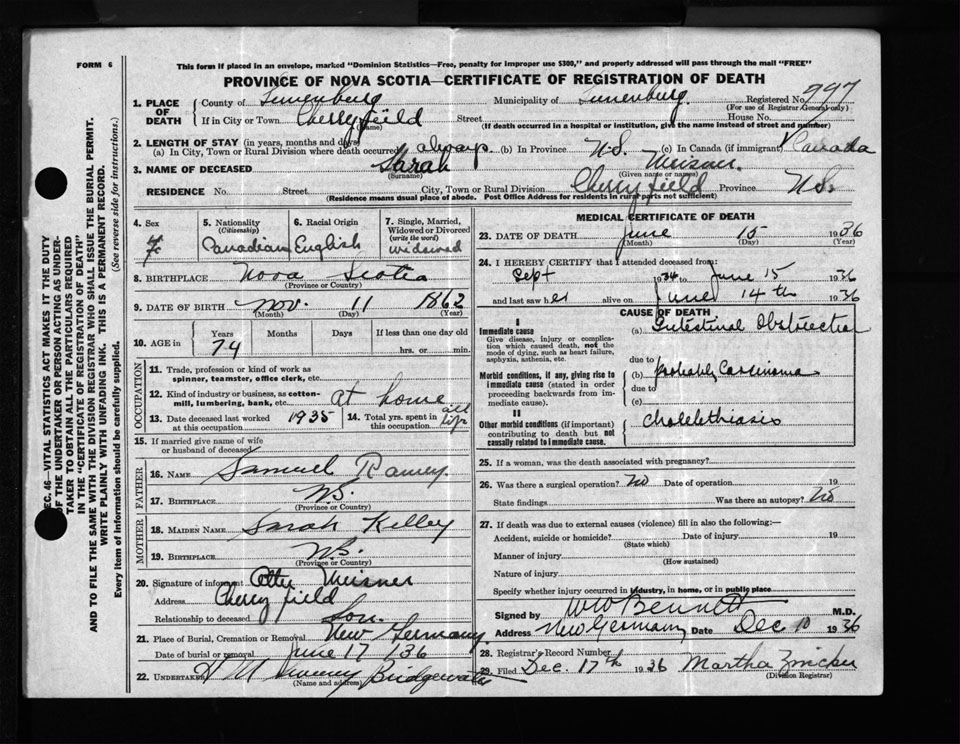 FORM 6
This form if placed in an envelope, marked "Dominion Statistics—Free, penalty for improper use $300," and properly addressed will pass through the mail "FREE"
PROVINCE OF NOVA SCOTIA—CERTIFICATE OF REGISTRATION OF DEATH
1. PLACE OF DEATH County of Lunenburg Municipality of Lunenburg Registered No. 997
(For use of Registrar General only)
If in City or Town Cherryfield Street House No.
(Name) (If death occurred in a hospital or institution, give the name instead of street and number)
2. LENGTH OF STAY (in years, months and days)
(a) In City, Town or Rural Division where death occurred always (b) In Province N.S. (c) In Canada (if immigrant) Canada
3. NAME OF DECEASED Sarah Meisner
(Surname) (Given name or names)
RESIDENCE No. Street City, Town or Rural Division Cherryfield Province N.S.
(Residence means usual place of abode. Post Office Address for residents in rural parts not sufficient)
4. Sex F
5. Nationality (Citizenship) Canadian
6. Racial Origin English
7. Single, Married, Widowed or Divorced (write the word) widowed
8. BIRTHPLACE Nova Scotia
(Province or Country)
9. DATE OF BIRTH Nov. 11 1862
(Month) (Day) (Year)
10. AGE in Years Months Days If less than one day old
74 hrs. or min.
OCCUPATION
11. Trade, profession or kind of work as spinner, teamster, office clerk, etc.
12. Kind of industry or business, as cotton-mill, lumbering, bank, etc. at home
13. Date deceased last worked at this occupation 1935
14. Total yrs. spent in this occupation all life
15. If married give name of wife or husband of deceased
FATHER
16. NAME Samuel Ramey
17. BIRTHPLACE N.S.
(Province or Country)
MOTHER
18. MAIDEN NAME Sarah Kelley
19. BIRTHPLACE N.S.
(Province or Country)
20. Signature of informant Meisner
Address Cherryfield
Relationship to deceased Son
21. Place of Burial, Cremation or Removal New Germany
Date of burial or removal June 17 /36
22. UNDERTAKER Bridgewater
(Name and address)
MEDICAL CERTIFICATE OF DEATH
23. DATE OF DEATH June 15 1936
(Month) (Day) (Year)
24. I HEREBY CERTIFY that I attended deceased from:
Sept 1934 to June 15 1936
and last saw her alive on June 14th 1936
CAUSE OF DEATH
I
Immediate cause
Give disease, injury or complication which caused death, not the mode of dying, such as heart failure, asphyxia, asthenia, etc.
(a) Intestinal Obstruction
due to
Morbid conditions, if any, giving rise to immediate cause (stated in order proceeding backwards from immediate cause).
(b) probably Carcinoma
due to
(c)
II
Other morbid conditions (if important) contributing to death but not causally related to immediate cause.
Cholelethiasis
25. If a woman, was the death associated with pregnancy?
26. Was there a surgical operation? No Date of operation 19
State findings Was there an autopsy? No
27. If death was due to external causes (violence) fill in also the following:—
Accident, suicide or homicide? Date of injury 19
(State which)
Manner of injury
(How sustained)
Nature of injury
Specify whether injury occurred in industry, in home, or in public place
Signed by W W Bennett M.D.
Address New Germany Date Dec 10 1936
28. Registrar's Record Number
29. Filed Dec. 17th 1936 Martha Zwicker
(Division Registrar)
SEC. 46—VITAL STATISTICS ACT MAKES IT THE DUTY
OF THE UNDERTAKER OR PERSON ACTING AS UNDER-
TAKER TO OBTAIN ALL THE PARTICULARS REQUIRED
IN THE "CERTIFICATE OF REGISTRATION OF DEATH"
AND TO FILE THE SAME WITH THE DIVISION REGISTRAR WHO SHALL ISSUE THE BURIAL PERMIT.
WRITE PLAINLY WITH UNFADING INK. THIS IS A PERMANENT RECORD.
Every item of information should be carefully supplied. (See reverse side for instructions.)